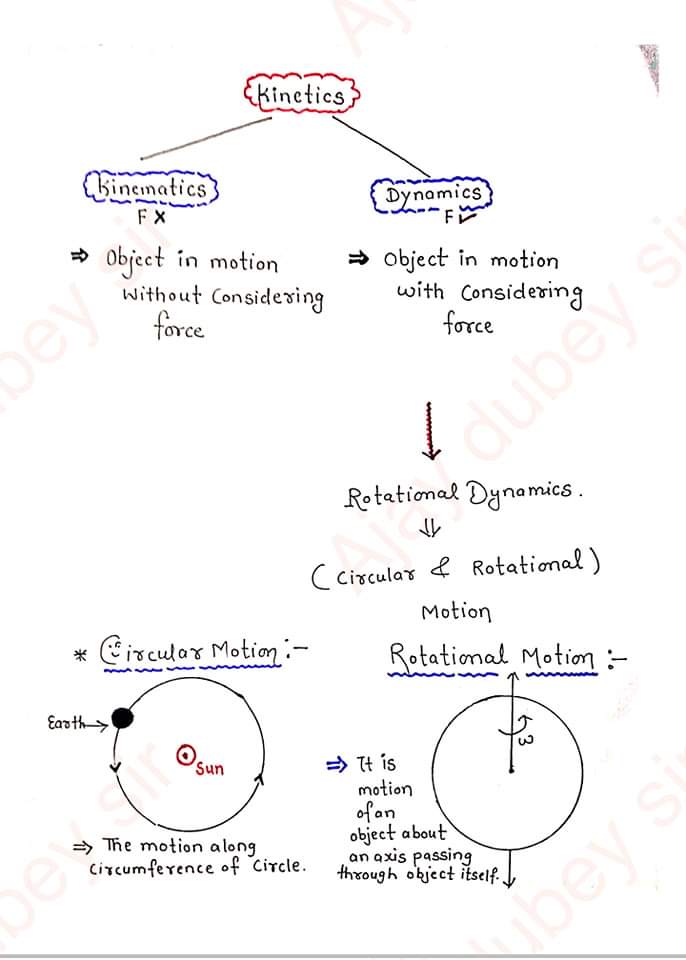 Kinetics
Kinematics
F X
⇒ Object in motion
without Considering
force
Dynamics
F ✓
⇒ Object in motion
with Considering
force
Rotational Dynamics.
⇓
(Circular & Rotational)
Motion
* Circular Motion :-
Earth→
Sun
⇒ The motion along
Circumference of Circle.
Rotational Motion :-
ω
⇒ It is
motion
of an
object about
an axis passing
through object itself.
Ajay dubey sir